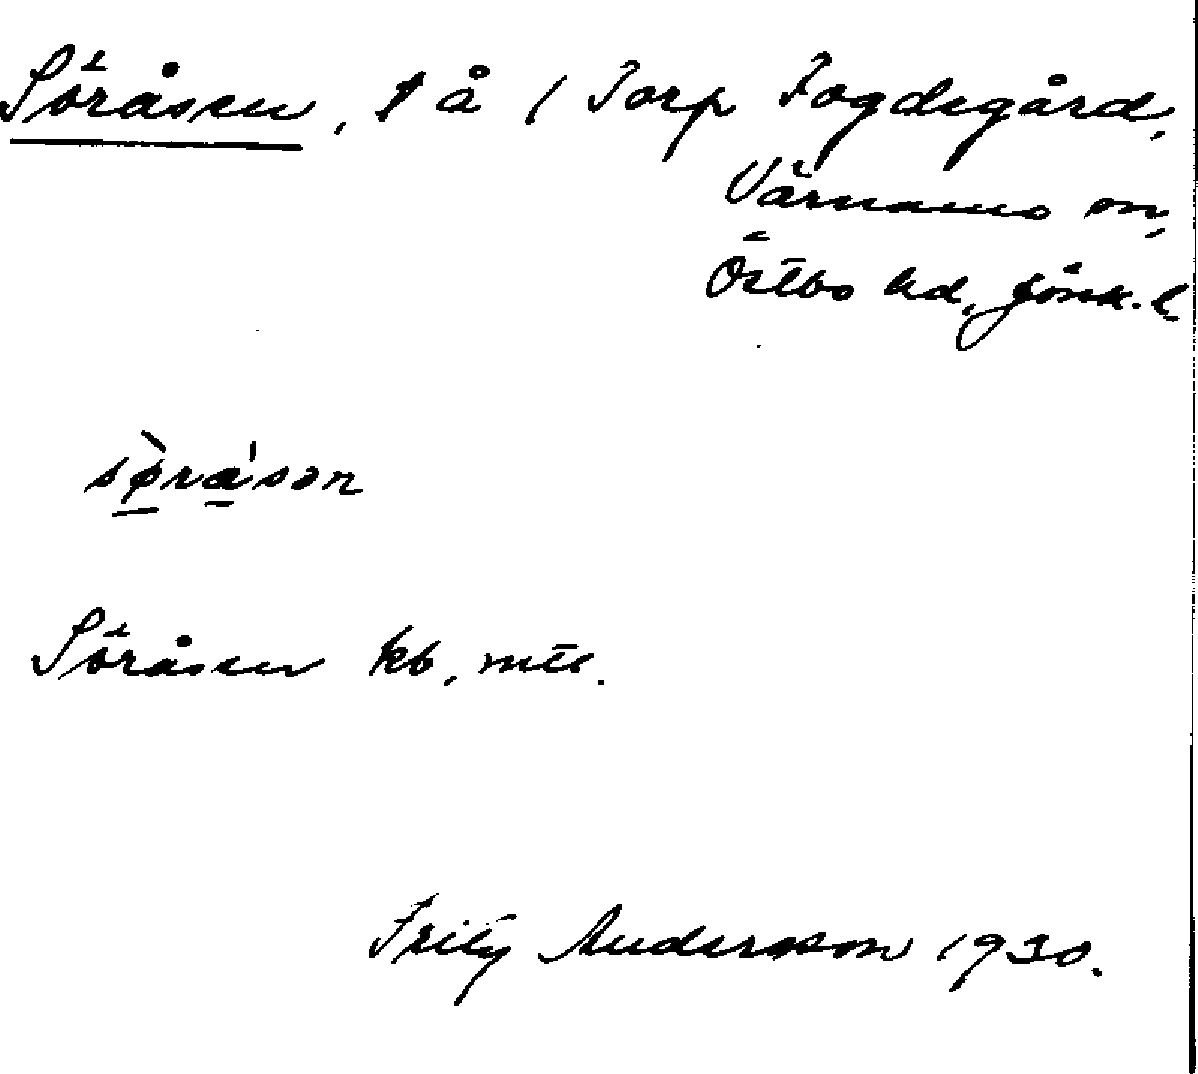 Söråsen, t å / Torp Fogdegård,
Värnamo sn,
Östbo hd, Jönk. l
sø̀rá̱sən
Söråsen kb, mtl.
Fritz Andersson 1930.